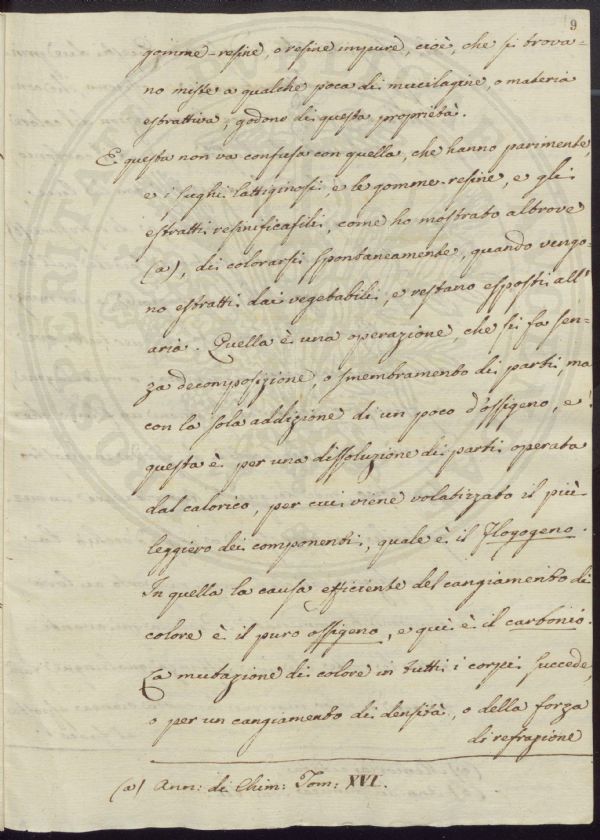 9
gomme-resine, o resine impure, cioè, che si trova-
no miste a qualche poca di mucilagine, o materia
estrattiva, godono di questa proprietà.
E questa non va confusa con quella, che hanno parimente,
e i sughi lattiginosi, e le gomme-resine, e gli
estratti resinificabili, come ho mostrato altrove
(a), di colorarsi spontaneamente, quando vengo-
no estratti dai vegetabili, e restano esposti all'
aria. Quella è una operazione, che si fa sen-
za decomposizione, o smembramento di parti, ma
con la sola addizione di un poco d'ossigeno, e
questa è per una dissoluzione di parti operata
dal calorico, per cui viene volatizzato il più
leggiero dei componenti, quale è il flogogeno.
In quella la causa efficiente del cangiamento di
colore è il puro ossigeno, e quì è il carbonio.
La mutazione di colore in tutti i corpi succede,
o per un cangiamento di densità, o della forza
di refrazione
(a) Ann: di Chim: Tom: XVI.